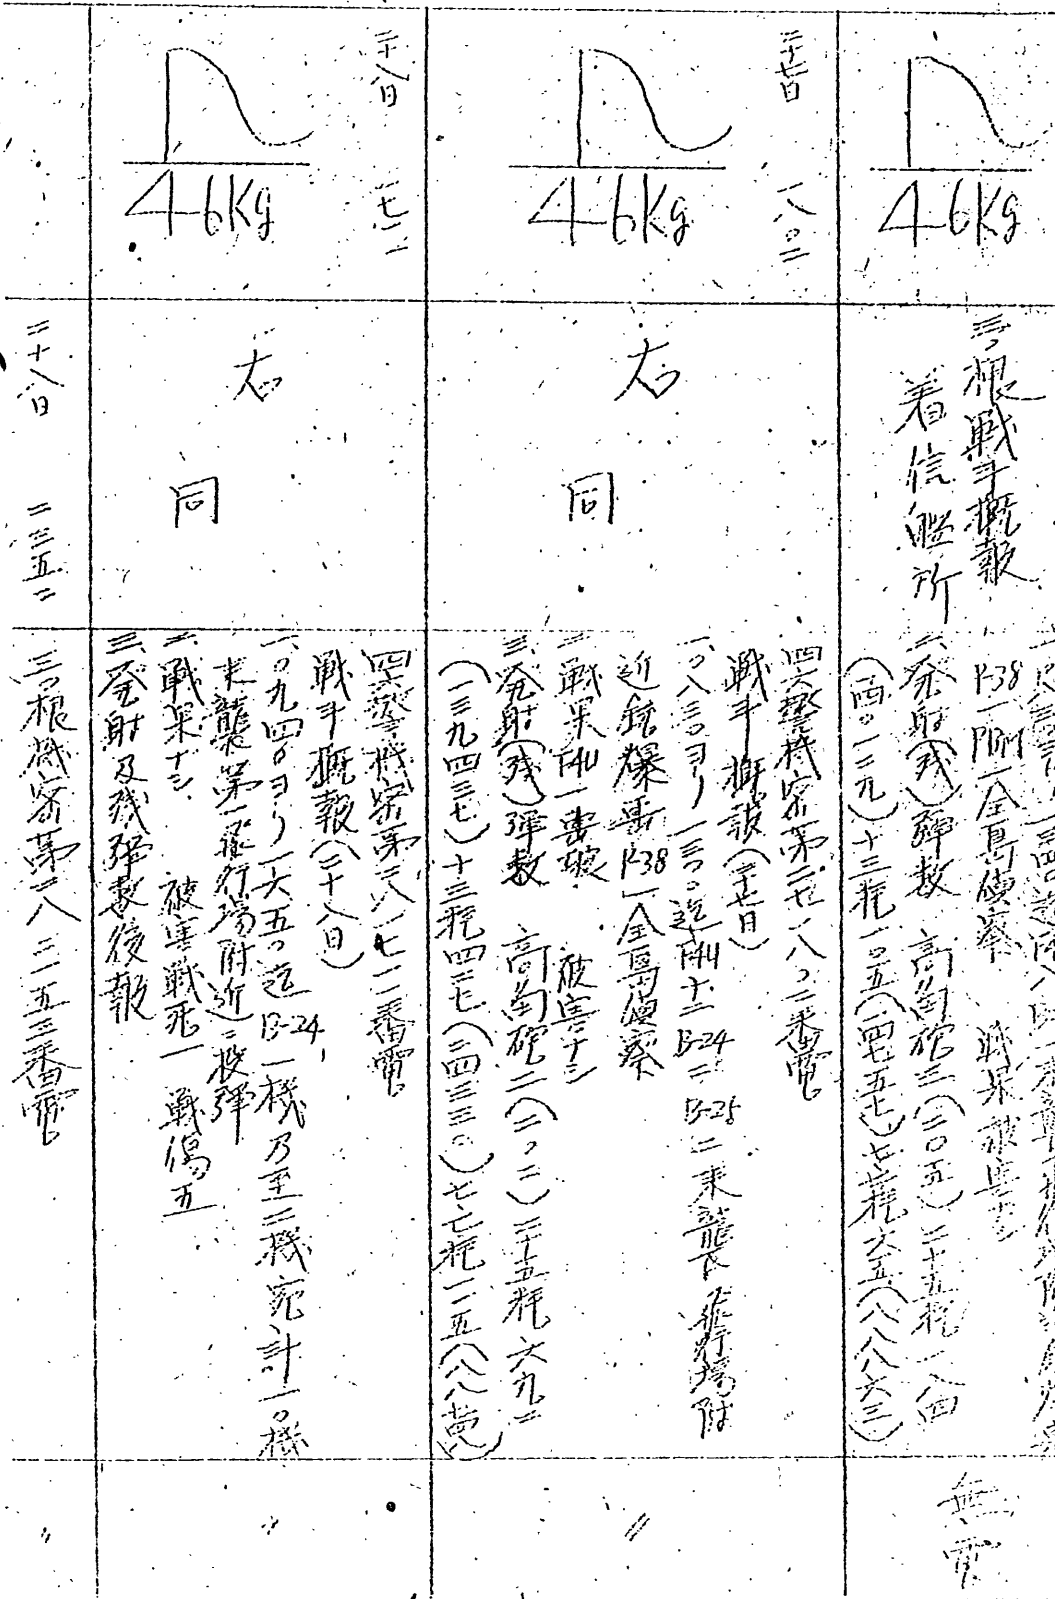 三、根戦斗概報
着信艦所
P-38一PBM一全島偵察 戦果被害ナシ
二、発射(残)弾数 高角砲三(二〇五)二十五粍一八四
(四〇一二九)十三粍一〇五(一四七五七)七.七粍六五(八八八六三)
無電
46Kg
二十七日 一八〇二
46Kg
右
同
四六警機密第二七一八〇二番電
戦斗概報(二十七日)
一、〇八三〇ヨリ一三〇〇迄F4U十二B-24二B-25二来襲長飛行場附
近銃爆撃P-38一全島偵察
二、戦果F4U一撃破 被害ナシ
三、発射(残)弾数 高角砲二(二〇二)二十五粍六九二
(三九四三七)十三粍四二七(一四三三〇)七.七粍一一五(八八
〃
二十八日 一七一一
46Kg
右
同
四六警機密第二八一七一一番電
戦斗概報(二十八日)
一、〇九四〇ヨリ一六五〇迄B-24一機乃至二機宛計一〇機
来襲第一飛行場附近ニ投弾
二、戦果ナシ 被害戦死一 戦傷五
三、発射及残弾数後報
〃
二十八日 二三五二
三、根機密第二八二一五三番電
〃